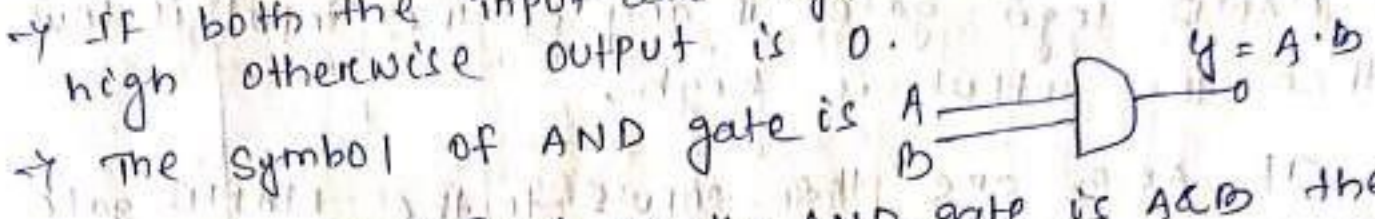 → If both the input
high otherwise output is 0.
y = A·B
→ The symbol of AND gate is A
B
AND gate is A&B the